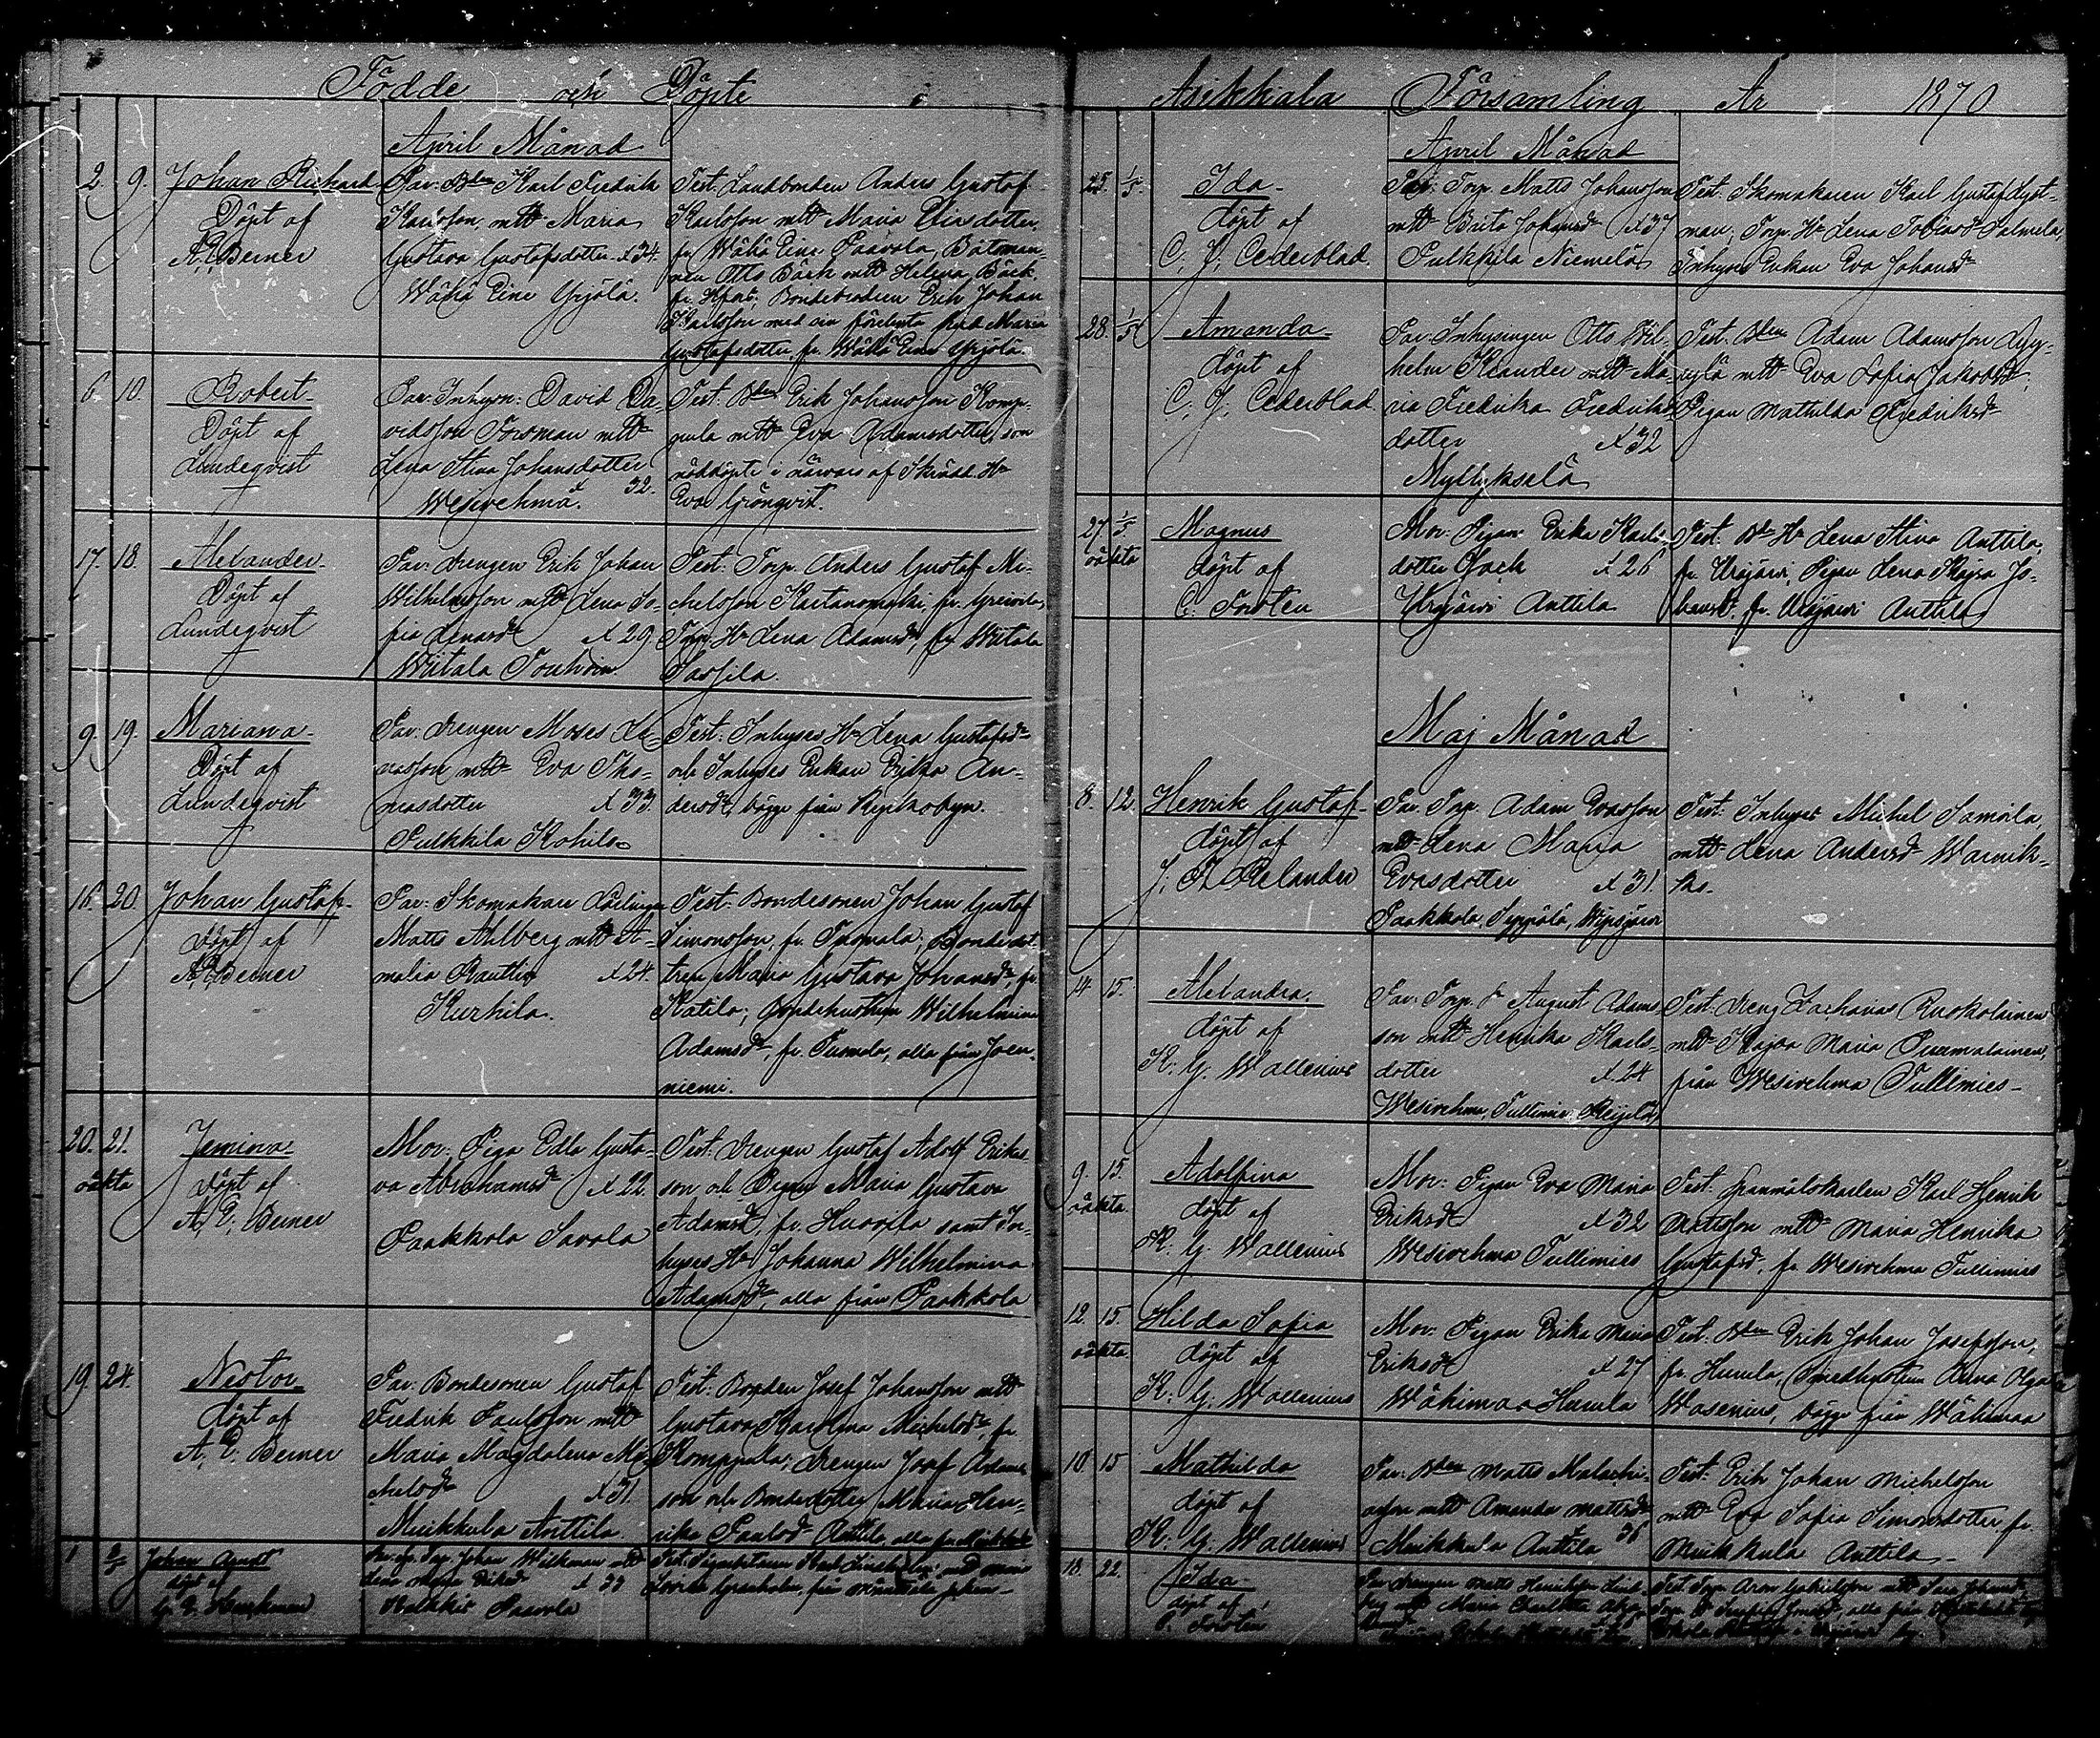 Födde och Döpte
April Månad
2. 9. Johan Richard
Döpt af
A. E. Berner
Far: Bden Karl Fredrik
Karlsson, mtt Maria
Gustava Gustafsdotter x 34.
Wähä Eine Yrjölä.
Test. Landbonden Anders Gustaf
Karlsson mtt Maria Eliasdotter,
fr Wähä Eine Paavola, Båtsman-
nen Otto Bäck mtt Helena Bäck
fr. Hfors; Bondebrodren Erik Johan
Karlsson med sin förelofvade Maria
Gustafsdotter, fr. Wähä Eine Yrjölä.
6. 10. Robert
Döpt af
Lundeqvist
Far: Inhysn: David Da-
vidsson Forsman mtt
Lena Stina Johansdotter
Wesivehma. x 32.
Test. Bden Erik Johansson Komp-
pula mtt Eva Adamsdotter, som
nöddöpte i närvaro af Skrädd. Hu
Eva Grönqvist.
17. 18. Alexander
Döpt af
Lundeqvist
Far: Drengen Erik Johan
Wilhelmsson mtt Lena So-
fia Lenasdr x 29.
Wiitala Touhoin
Test: Torp. Anders Gustaf Mi-
chelsson
Torp. Hu Lena Adamsdr, fr Wiitala
Sassila.
9. 19. Mariana
Döpt af
Lundeqvist
Far: Drengen Moses
mtt Eva Tho-
masdotter x 33.
Pulkkila Kohila
Test: Inhyses Hu Lena Gustafsdr
och Inhyses Enkan Erika An-
dersdr, bägge från byn.
16. 20. Johan Gustaf
Döpt af
A. E. Berner
Far: Skomakare Lärlingen
Matts Ahlberg mtt A-
malia Rauthio x 24.
Kurhila.
Test: Bondesonen Johan Gustaf
Simonsson, fr. Tuomala; Bondedot-
tren Maria Gustava Johansdr, fr.
Katila; Bondehustrun Wilhelmina
Adamsdr, fr. Tuomala, alla från Joen-
niemi.
20. 21. Jemina
oäkta Döpt af
A. E. Berner
Mor: Piga Edla Gusta-
va Abrahamsd x 22.
Paakkola Savola
Test: Drengen Gustaf Adolf Eriks-
son och Pigan Maria Gustava
Adamsdr, fr. Huovila samt In-
hyses Hu Johanna Wilhelmina
Adamsdr, alla från Paakkola
19. 24. Nestor
döpt af
A. E. Berner
Far: Bondesonen Gustaf
Fredrik Paulsson mtt
Maria Magdalena Mi-
chelsdr x 31.
Muikkula Anttila.
Test: Bonden Josef Johansson mtt
Gustava Karolina Michelsdr, fr.
Komppula; Drengen Josef Adams-
son och Bondedotter Maria Hen-
rika Paulsdr Anttila, alla fr. Muikkula
1. Johan
döpt af
Johan Wilkman mtt
x 33
Paavola
Asikkala Församling År 1870
April Månad
25. 1/5. Ida
döpt af
C. J. Cederblad.
Far: Torp. Matts Johansson
mtt Brita Johansdr x 37
Pulkkila Niemelä
Test: Skomakaren Karl Gustaf Lyst-
man; Torp. Hu Lena Tobiasd Salmela,
Inhyses Enkan Eva Johansdr
28. 1/5 Amanda
döpt af
C. J. Cederblad
Far Inhysingen Otto Wil-
helm Kiander mtt Ma-
ria Fredrika Fredriks-
dotter x 32
Myllykselä
Test: Bden Adam Adamsson
mtt Eva Sofia Jakobsd,
Pigan Mathilda Fredriksdr
27. 1/5. Magnus
oäkta döpt af
C. Forstén
Mor: Pigan Erika Karls-
dotter x 26
Urajärvi Anttila
Test: Bde Hu Lena Stina Anttila,
fr. Urajärvi, Pigan Lena Kajsa Jo-
hansd. fr. Urajärvi Anttila
Maj Månad
8. 12. Henrik Gustaf
döpt af
J. A. Relander
Far Torp. Adam Evasson
mtt Lena Maria
Evasdotter x 31.
Paakkola, Seppälä,
Test: Inhyses Michel Samola,
mtt Lena Andersd
14. 15. Alexandra.
döpt af
K. G. Wallenius
Far: Torp. sn August Adams-
son mtt Henrika Karls-
dotter x 24
Wesivehma, Tullimies
Test: Dreng Zacharias Ruskolainen
mtt Kajsa Maria Puumalainen,
från Wesivehma Tullimies
9. 15. Adolfina
oäkta döpt af
K. G. Wallenius
Mor: Pigan Eva Maria
Eriksdr x 32
Wesivehma Tullimies
Test: Spanmålskarlen Karl Henrik
Mattsson mtt Maria Henrika
Gustafsd, fr. Wesivehma Tullimies
12. 15. Hilda Sofia
oäkta döpt af
K. G. Wallenius
Mor: Pigan Erika Maria
Eriksdr x 27
Wähimaa Humla
Test. Bden Erik Johan Josefsson,
fr. Humla, Smedhustrun Anna Olga
Wasenius, bägge från Wähimaa
10. 15 Mathilda
döpt af
K. G. Wallenius
Far: Bden Matts Malachi-
asson mtt Amanda Mattsdr
Muikkula Anttila 36
Test: Erik Johan Michelsson
mtt Eva Sofia Simonsdotter, fr.
Muikkula Anttila
18. 22. Ida
döpt af
C. Forstén
Far Drengen Matts Henriksson
mtt Maria Charlotta